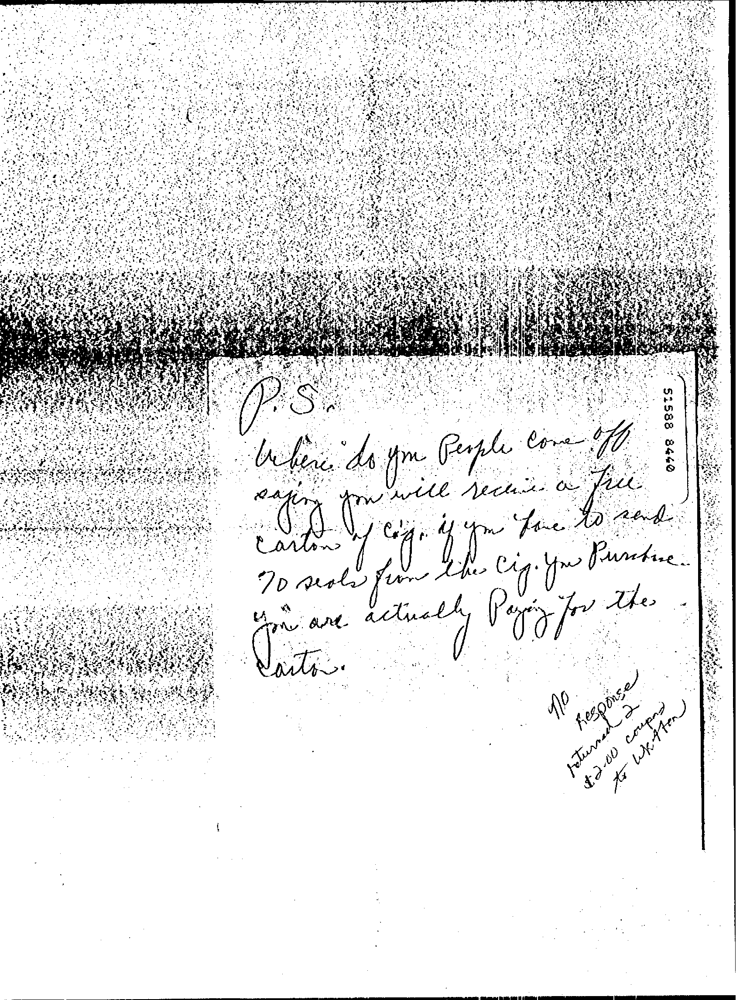 P.S.
Where do you People come off
saying you will receive a free
carton of cig. if you have to send
70 seals from the cig. you Purchase.
you are actually Paying for the
carton.
51588 8440
No
Response
returned 2
$2.00 coupons
to